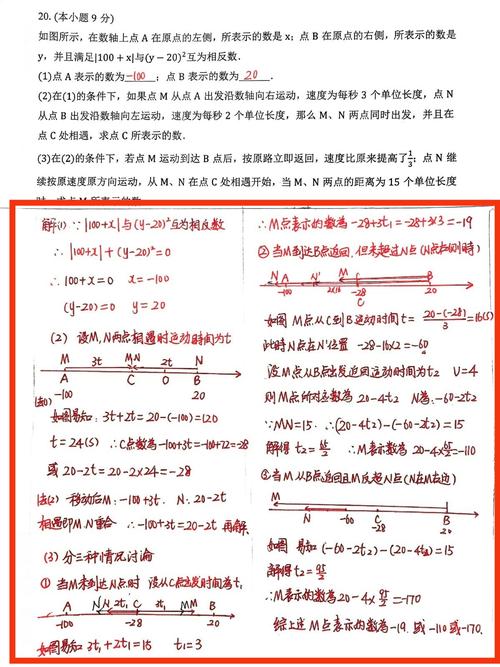 20. (本小题 9 分)
如图所示，在数轴上点 A 在原点的左侧，所表示的数是 x；点 B 在原点的右侧，所表示的数是
y，并且满足|100 + x|与(y − 20)²互为相反数．
(1)点 A 表示的数为 -100 ；点 B 表示的数为 20 ．
(2)在(1)的条件下，如果点 M 从点 A 出发沿数轴向右运动，速度为每秒 3 个单位长度，点 N
从点 B 出发沿数轴向左运动，速度为每秒 2 个单位长度，那么 M、N 两点同时出发，并且在
点 C 处相遇，求点 C 所表示的数．
(3)在(2)的条件下，若点 M 运动到达 B 点后，按原路立即返回，速度比原来提高了1/3；点 N 继
续按原速度原方向运动，从 M、N 在点 C 处相遇开始，当 M、N 两点的距离为 15 个单位长度
解(1) ∵|100+x|与(y-20)²互为相反数
∴ |100+x|+(y-20)²=0
∴ 100+x=0 x=-100
(y-20)=0 y=20
(2) 设M,N两点相遇时运动时间为t
M 3t MN 2t N
A C O B
-100 20
法(1)
如图易知: 3t+2t=20-(-100)=120
t=24(s) ∴C点数为-100+3t=-100+72=-28
或 20-2t=20-2×24=-28
法(2) 移动后M:-100+3t. N:20-2t
相遇即M.N重合 ∴-100+3t=20-2t 再解.
(3) 分三种情况讨论
① 当M未到达B点时 设从C点出发时间为t₁
A N 2t₁ C 3t₁ M B
-100 -28 20
如图易知 3t₁+2t₁=15 t₁=3
∴M点表示的数为-28+3t₁=-28+3×3=-19
② 当M到达B点返回,但未超过N点(N点左侧时)
N A N' M B
-100 2×16 -28 20
C
如图 M点从C到B运动时间t=20-(-28)/3=16(s)
此时N点在N'位置 -28-16×2=-60
设M点从B点出发返回运动时间为t₂ V=4
则M点所对应数为20-4t₂ N为:-60-2t₂
∵MN=15 ∴(20-4t₂)-(-60-2t₂)=15
解得 t₂=65/2 ∴M表示数为20-4×65/2=-110
③当M从B点返回且M反超N点(N在M右边)
M
N -60 C B
-28 20
如图 易知(-60-2t₂)-(20-4t₂)=15
解得t₂=95/2
∴M表示数为20-4×95/2=-170
综上述M点表示的数为-19.或-110或-170.